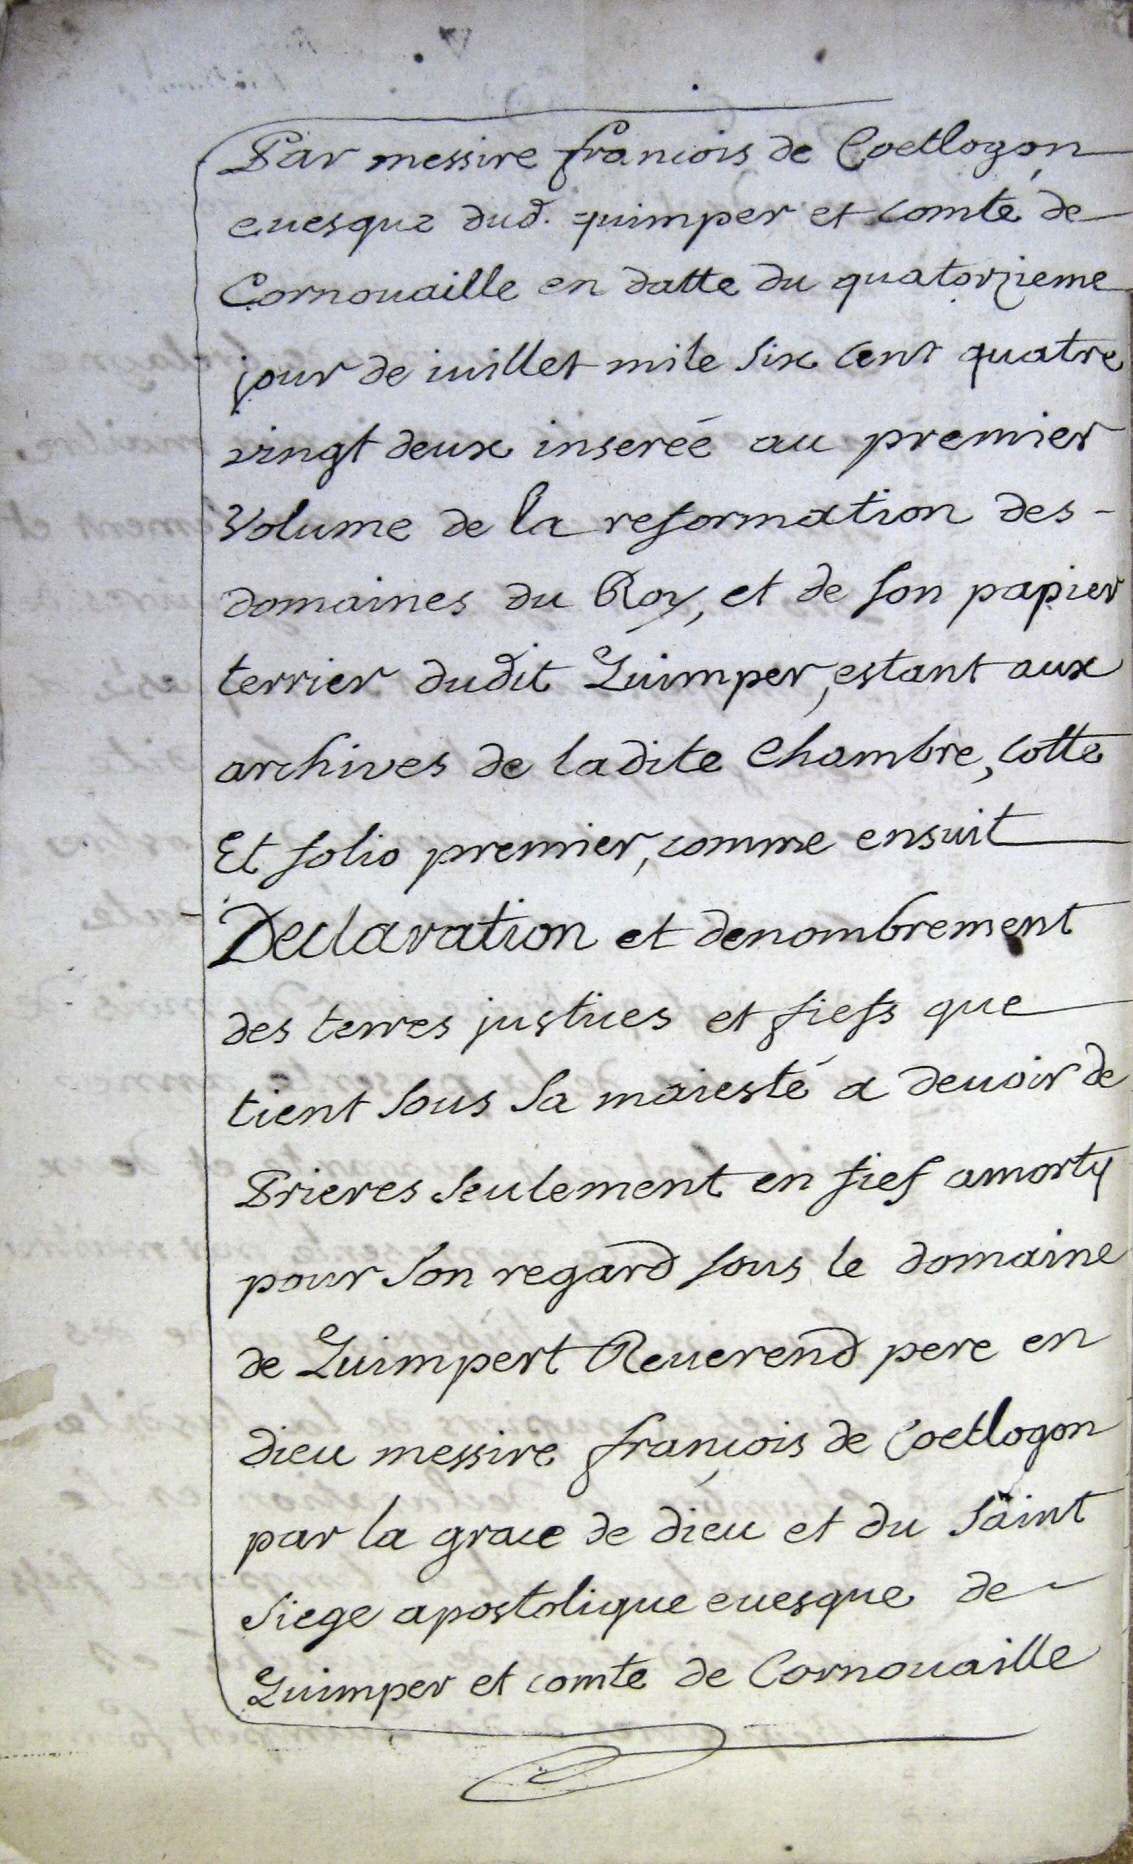 Par messire francois de Coetlogon
euesque dud. quimper et comté de
Cornouaille en datte du quatorzieme
jour de iuillet mile six cent quatre
vingt deux inserée au premier
Volume de la reformation des -
domaines du Roy, et de son papier
terrier dudit Quimper, estant aux
archives de ladite Chambre, cotte
Et folio premier, comme ensuit
Declaration et denombrement
des terres justices et fiefs que
tient sous sa maiesté a deuoir de
Prieres seulement en fief amorty
pour son regard sous le domaine
de Quimpert Reuerend pere en
dieu messire françois de Coetlogon
par la grace de dieu et du saint
siege apostolique euesque de
Quimper et comte de Cornouaille